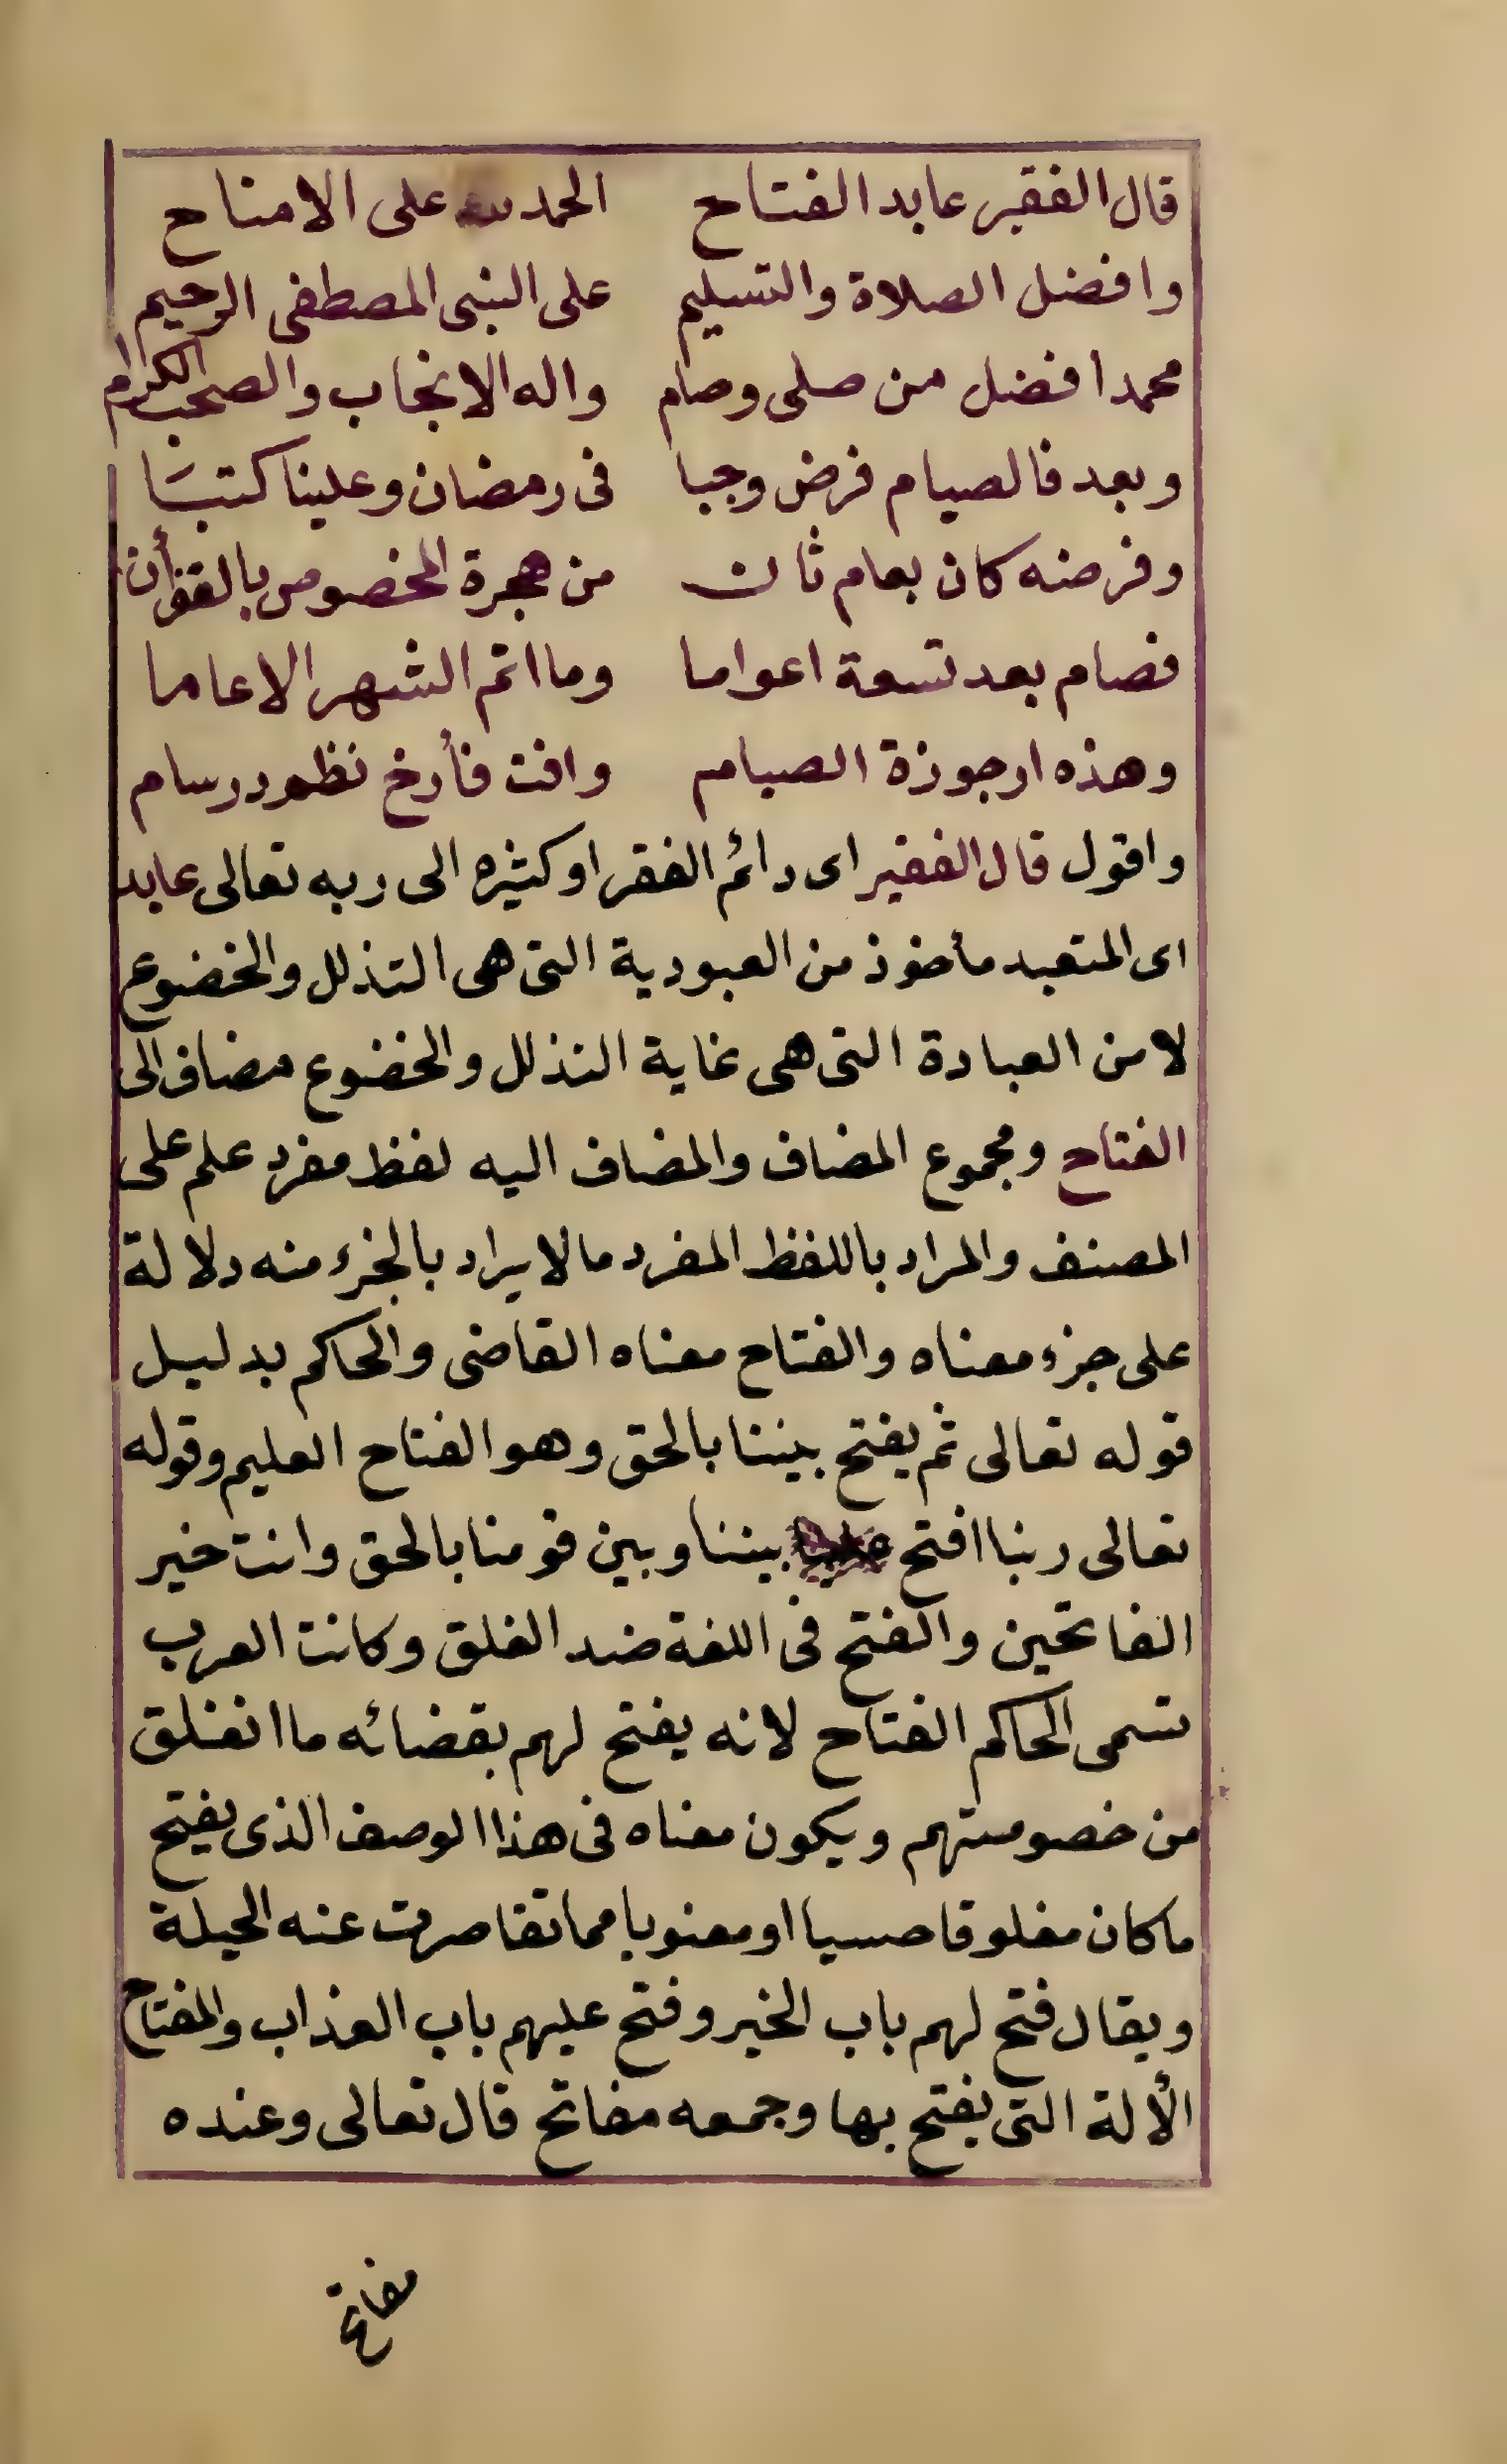 قال الفقير عابد الفتاح الحمد لله على الامناح
وافضل الصلاة والتسليم على النبى المصطفى الرحيم
محمد افضل من صلى وصام واله الانجاب والصحب الكرام
وبعد فالصيام فرض وجبا فى رمضان وعلينا كتبا
وفرضه كان بعام ثان من هجرة المخصوص بالقرأن
فصام بعد تسعة اعواما وما اتم الشهر الا عاما
وهذه ارجوزة الصيام وافت فأرخ نظم در سام
واقول قال الفقير اى دائم الفقر او كثيره الى ربه تعالى عابد
اى المتعبد مأخوذ من العبودية التى هى التذلل والخضوع
لا من العبادة التى هى غاية التذلل والخضوع مضاف الى
الفتاح ومجموع المضاف والمضاف اليه لفظ مفرد علم على
المصنف والمراد باللفظ المفرد ما لا يراد بالجزء منه دلالة
على جزء معناه والفتاح معناه القاضى والحاكم بدليل
قوله تعالى ثم يفتح بيننا بالحق وهو الفتاح العليم وقوله
تعالى ربنا افتح بيننا وبين قومنا بالحق وانت خير
الفاتحين والفتح فى اللغة ضد الغلق وكانت العرب
تسمى الحاكم الفتاح لانه يفتح لهم بقضائه ما انغلق
من خصومتهم ويكون معناه فى هذا الوصف الذى يفتح
ما كان مغلوقا حسيا او معنويا مما تقاصرت عنه الحيلة
ويقال فتح لهم باب الخير وفتح عليهم باب العذاب والمفتاح
الألة التى يفتح بها وجمعه مفاتح قال تعالى وعنده
مفاتح